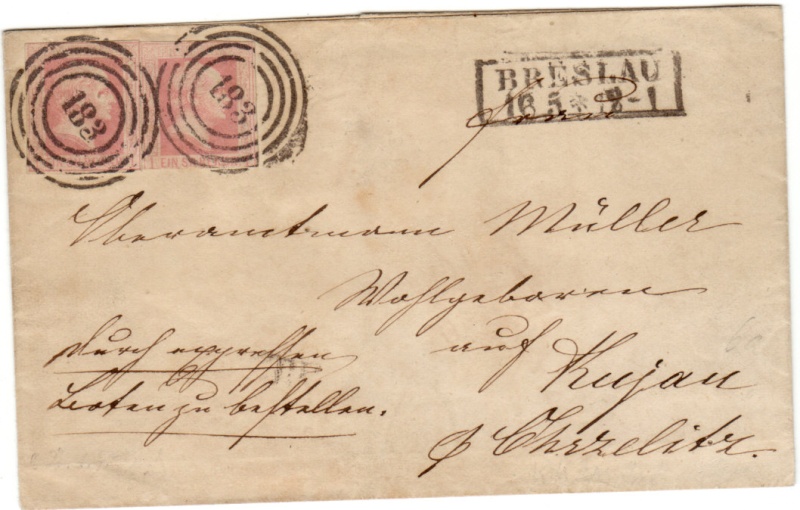 183
183
EIN S
BRESLAU
16 5 * 12-1
Oberamtmann Müller
Wohlgeboren
auf
Kujau
p Chrzelitz.
durch expressen
Boten zu bestellen.